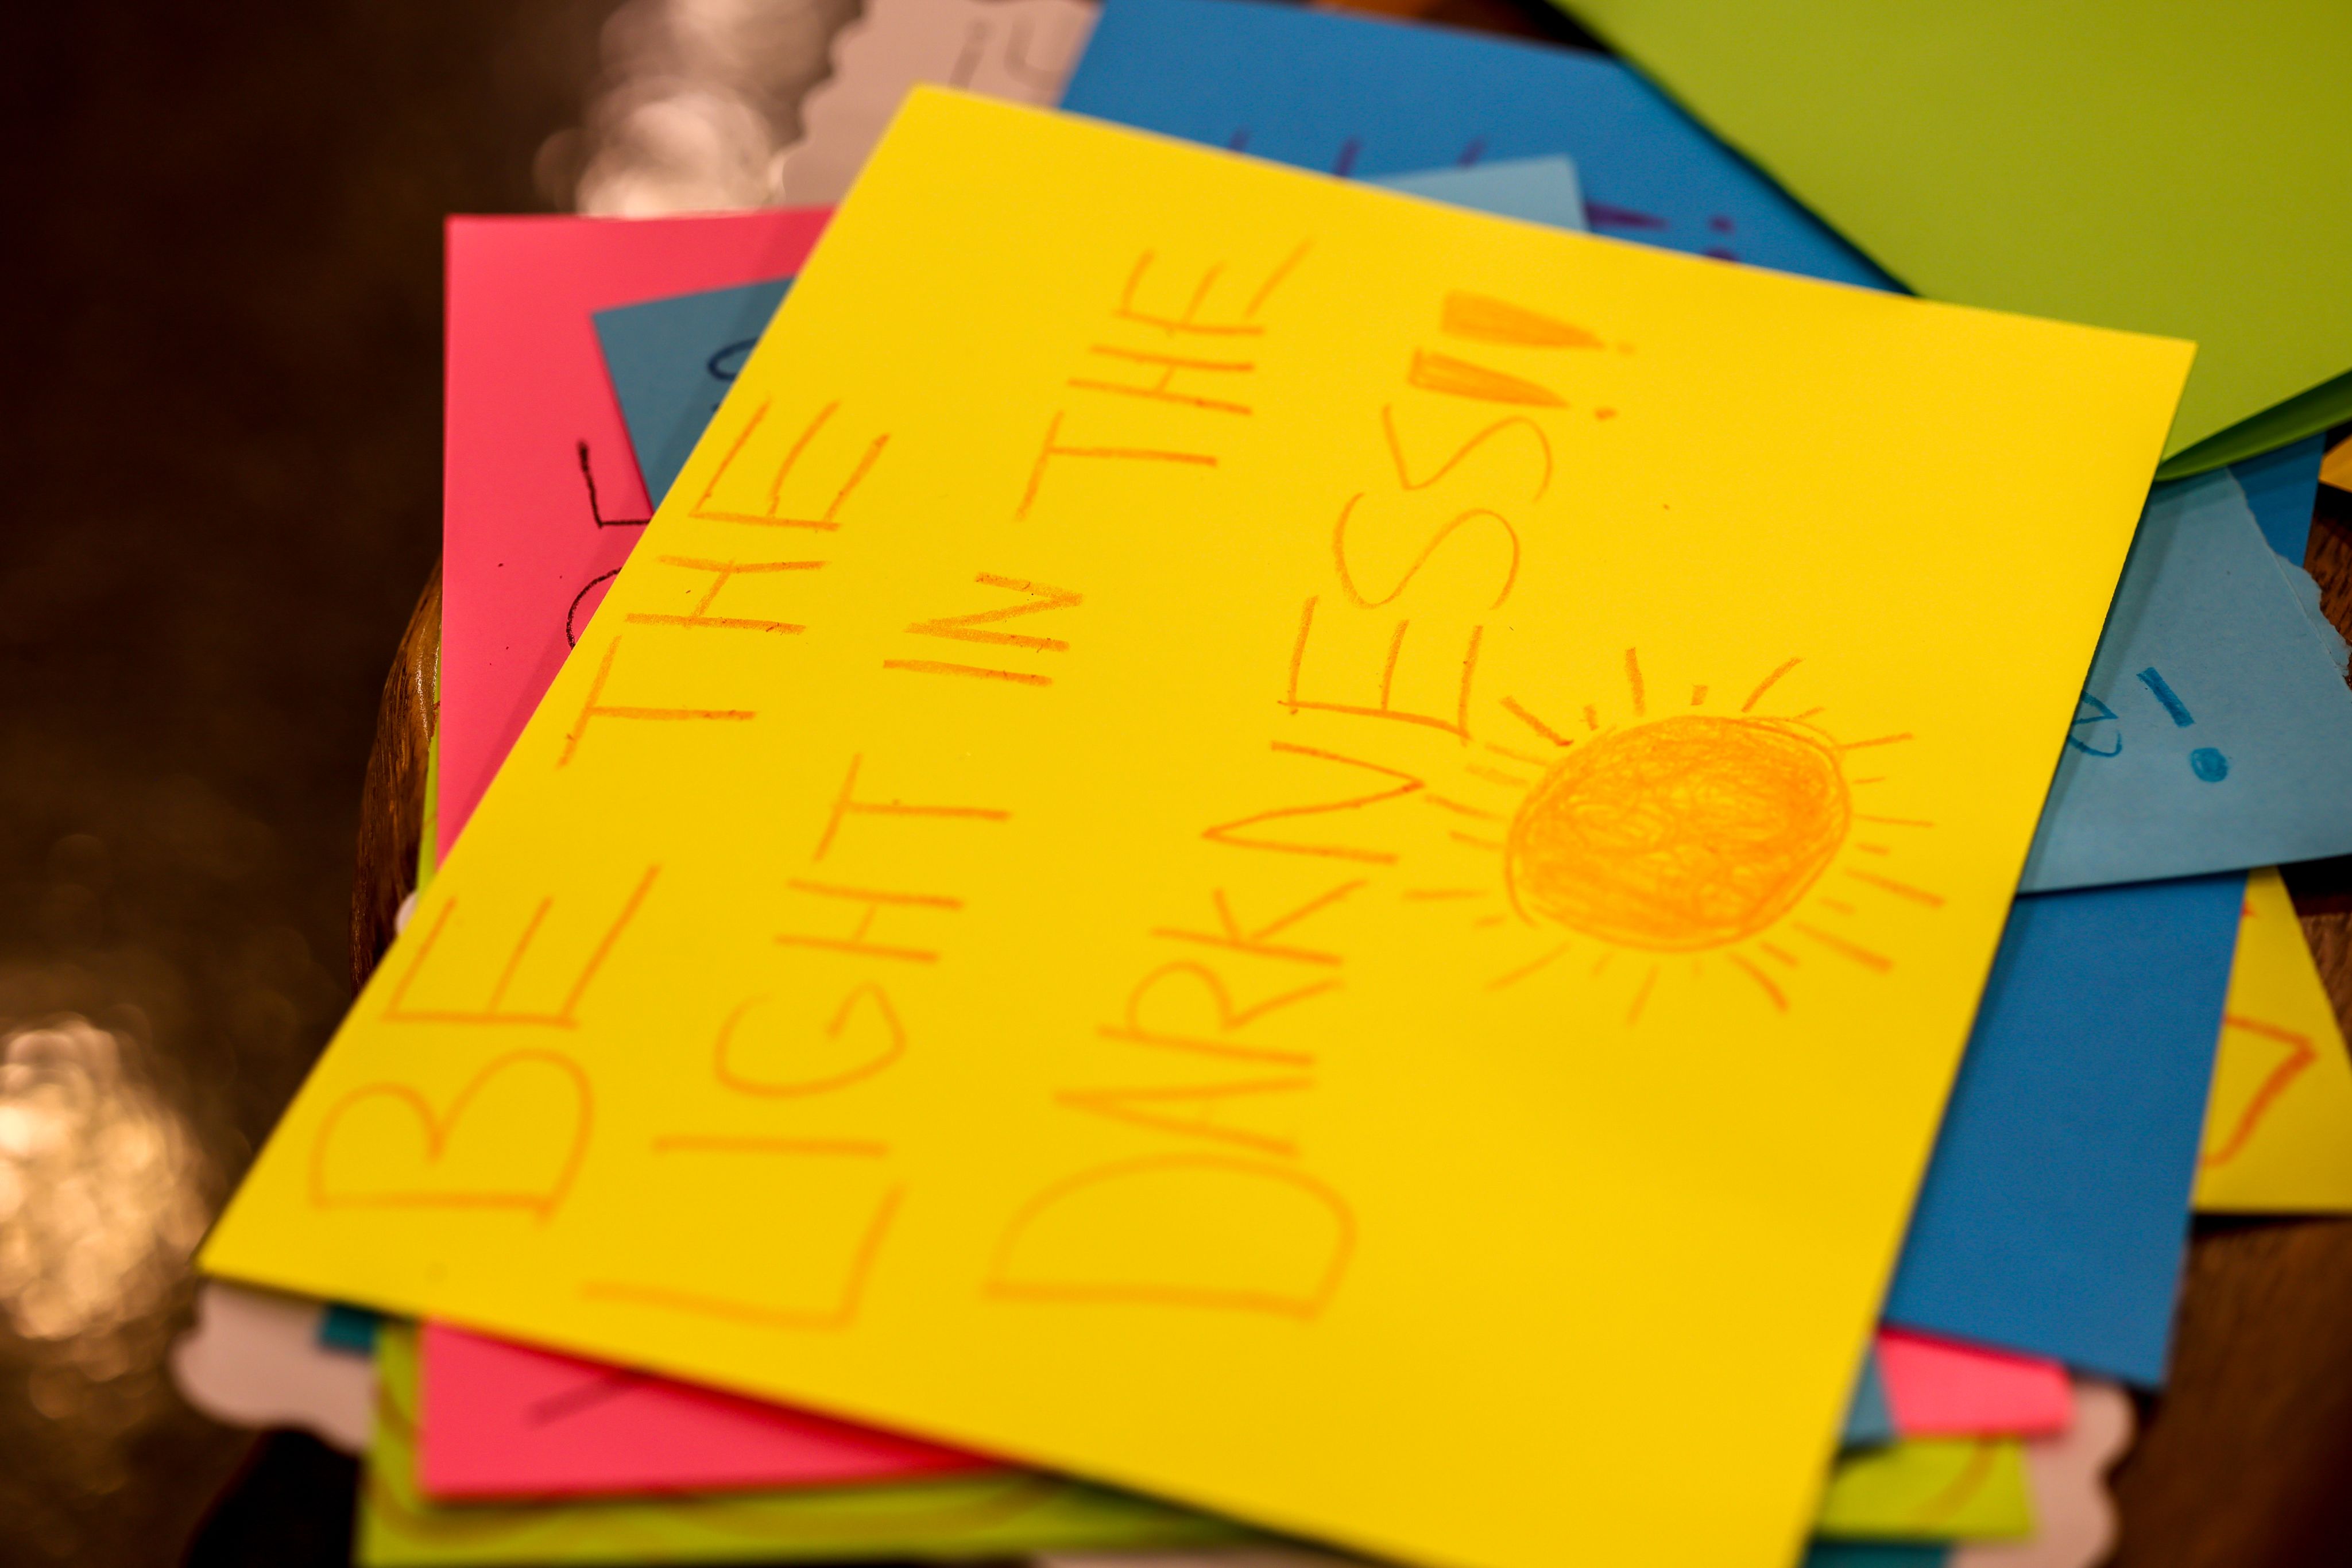 BE THE
LIGHT IN THE
DARKNESS!!